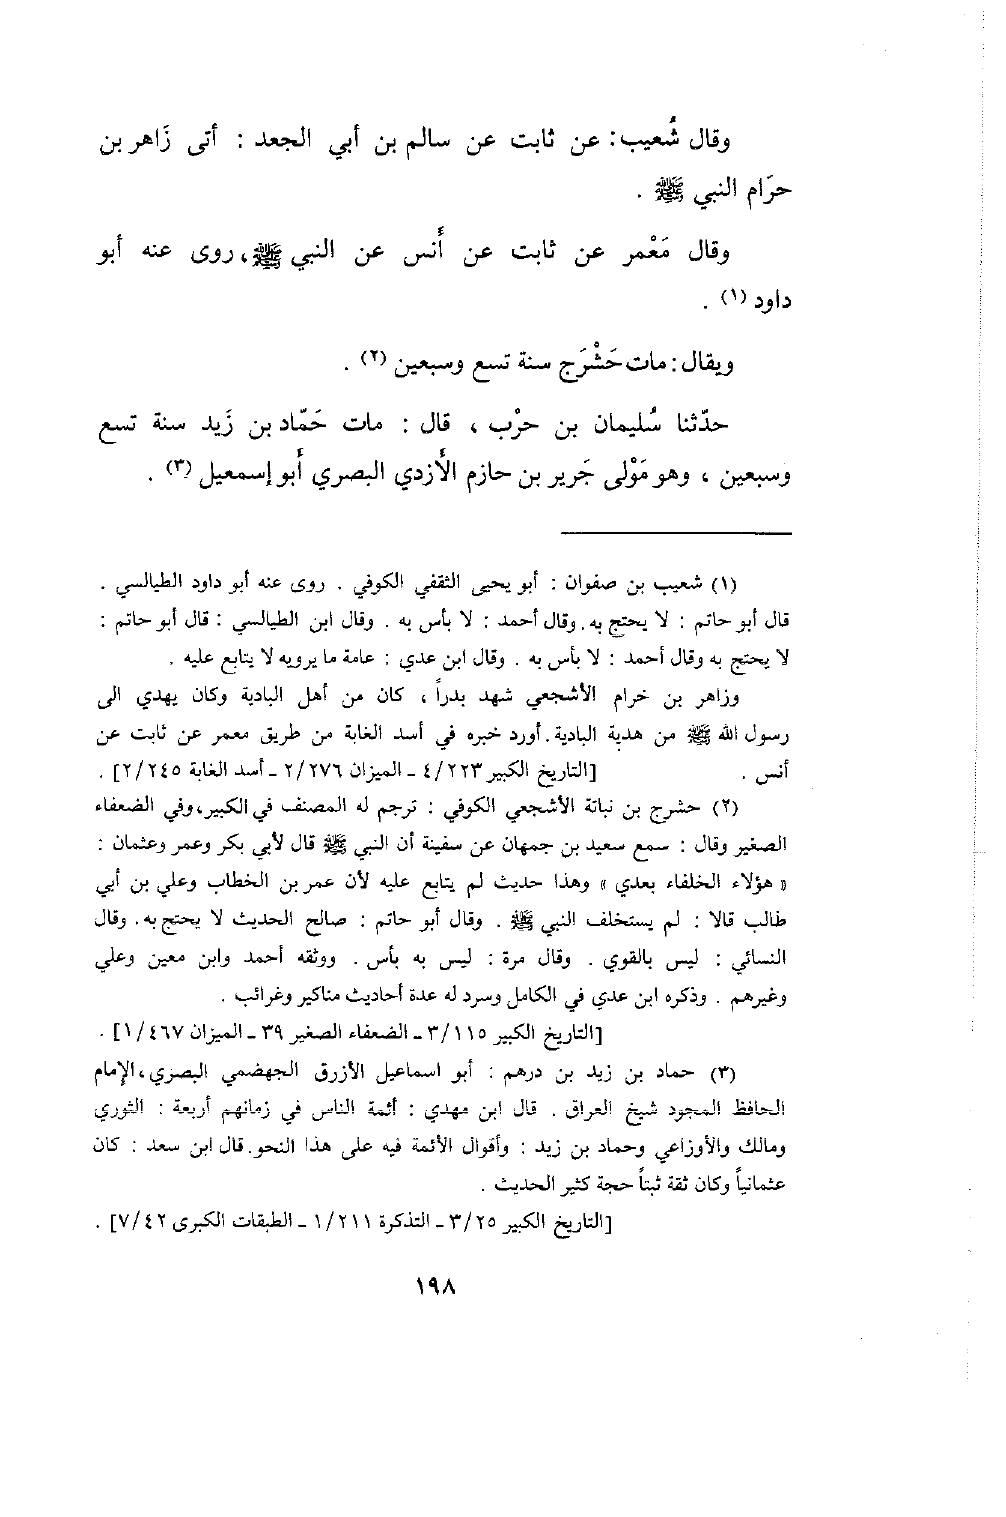 وقال شُعيب : عن ثابت عن سالم بن أبي الجعد : أتى زَاهر بن
حرَام النبي ﷺ .
وقال مَعْمر عن ثابت عن أَنس عن النبي ﷺ، روى عنه أبو
داود (١) .
ويقال : مات حَشْرَج سنة تسع وسبعين (٢) .
حدّثنا سُليمان بن حرْب ، قال : مات حَمّاد بن زَيد سنة تسع
وسبعين ، وهو مَوْلى جَرير بن حازم الأَزدي البصري أَبو إسمعيل (٣) .
(١) شعيب بن صفوان : أبو يحيى الثقفي الكوفي . روى عنه أبو داود الطيالسي .
قال أبو حاتم : لا يحتج به . وقال أحمد : لا بأس به . وقال ابن الطيالسي : قال أبو حاتم :
لا يحتج به وقال أحمد : لا بأس به . وقال ابن عدي : عامة ما يرويه لا يتابع عليه .
وزاهر بن خرام الأشجعي شهد بدراً ، كان من أهل البادية وكان يهدي الى
رسول الله ﷺ من هدية البادية . أورد خبره في أسد الغابة من طريق معمر عن ثابت عن
أنس . [التاريخ الكبير ٤/٢٢٣ ـ الميزان ٢/٢٧٦ ـ أسد الغابة ٢/٢٤٥] .
(٢) حشرج بن نباتة الأشجعي الكوفي : ترجم له المصنف في الكبير، وفي الضعفاء
الصغير وقال : سمع سعيد بن جمهان عن سفينة أن النبي ﷺ قال لأبي بكر وعمر وعثمان :
« هؤلاء الخلفاء بعدي » وهذا حديث لم يتابع عليه لأن عمر بن الخطاب وعلي بن أبي
طالب قالا : لم يستخلف النبي ﷺ . وقال أبو حاتم : صالح الحديث لا يحتج به . وقال
النسائي : ليس بالقوي . وقال مرة : ليس به بأس . ووثقه أحمد وابن معين وعلي
وغيرهم . وذكره ابن عدي في الكامل وسرد له عدة أحاديث مناكير وغرائب .
[التاريخ الكبير ٣/١١٥ ـ الضعفاء الصغير ٣٩ ـ الميزان ١/٤٦٧] .
(٣) حماد بن زيد بن درهم : أبو اسماعيل الأزرق الجهضمي البصري ، الإمام
الحافظ المجود شيخ العراق . قال ابن مهدي : أئمة الناس في زمانهم أربعة : الثوري
ومالك والأوزاعي وحماد بن زيد : وأقوال الأئمة فيه على هذا النحو . قال ابن سعد : كان
عثمانياً وكان ثقة ثبتاً حجة كثير الحديث .
[التاريخ الكبير ٣/٢٥ ـ التذكرة ١/٢١١ ـ الطبقات الكبرى ٧/٤٢] .
١٩٨